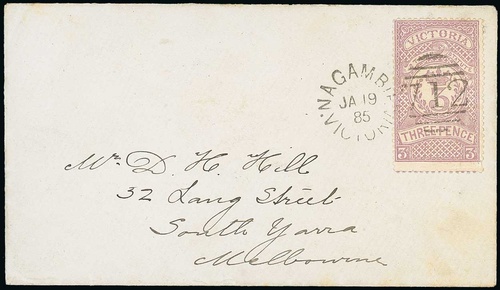 VICTORIA
NAGAMBIE
JA 19
85
VICTORIA
712
THREE PENCE
3 3
Mr. D. H. Hill
32 Lang Street
South Yarra
Melbourne